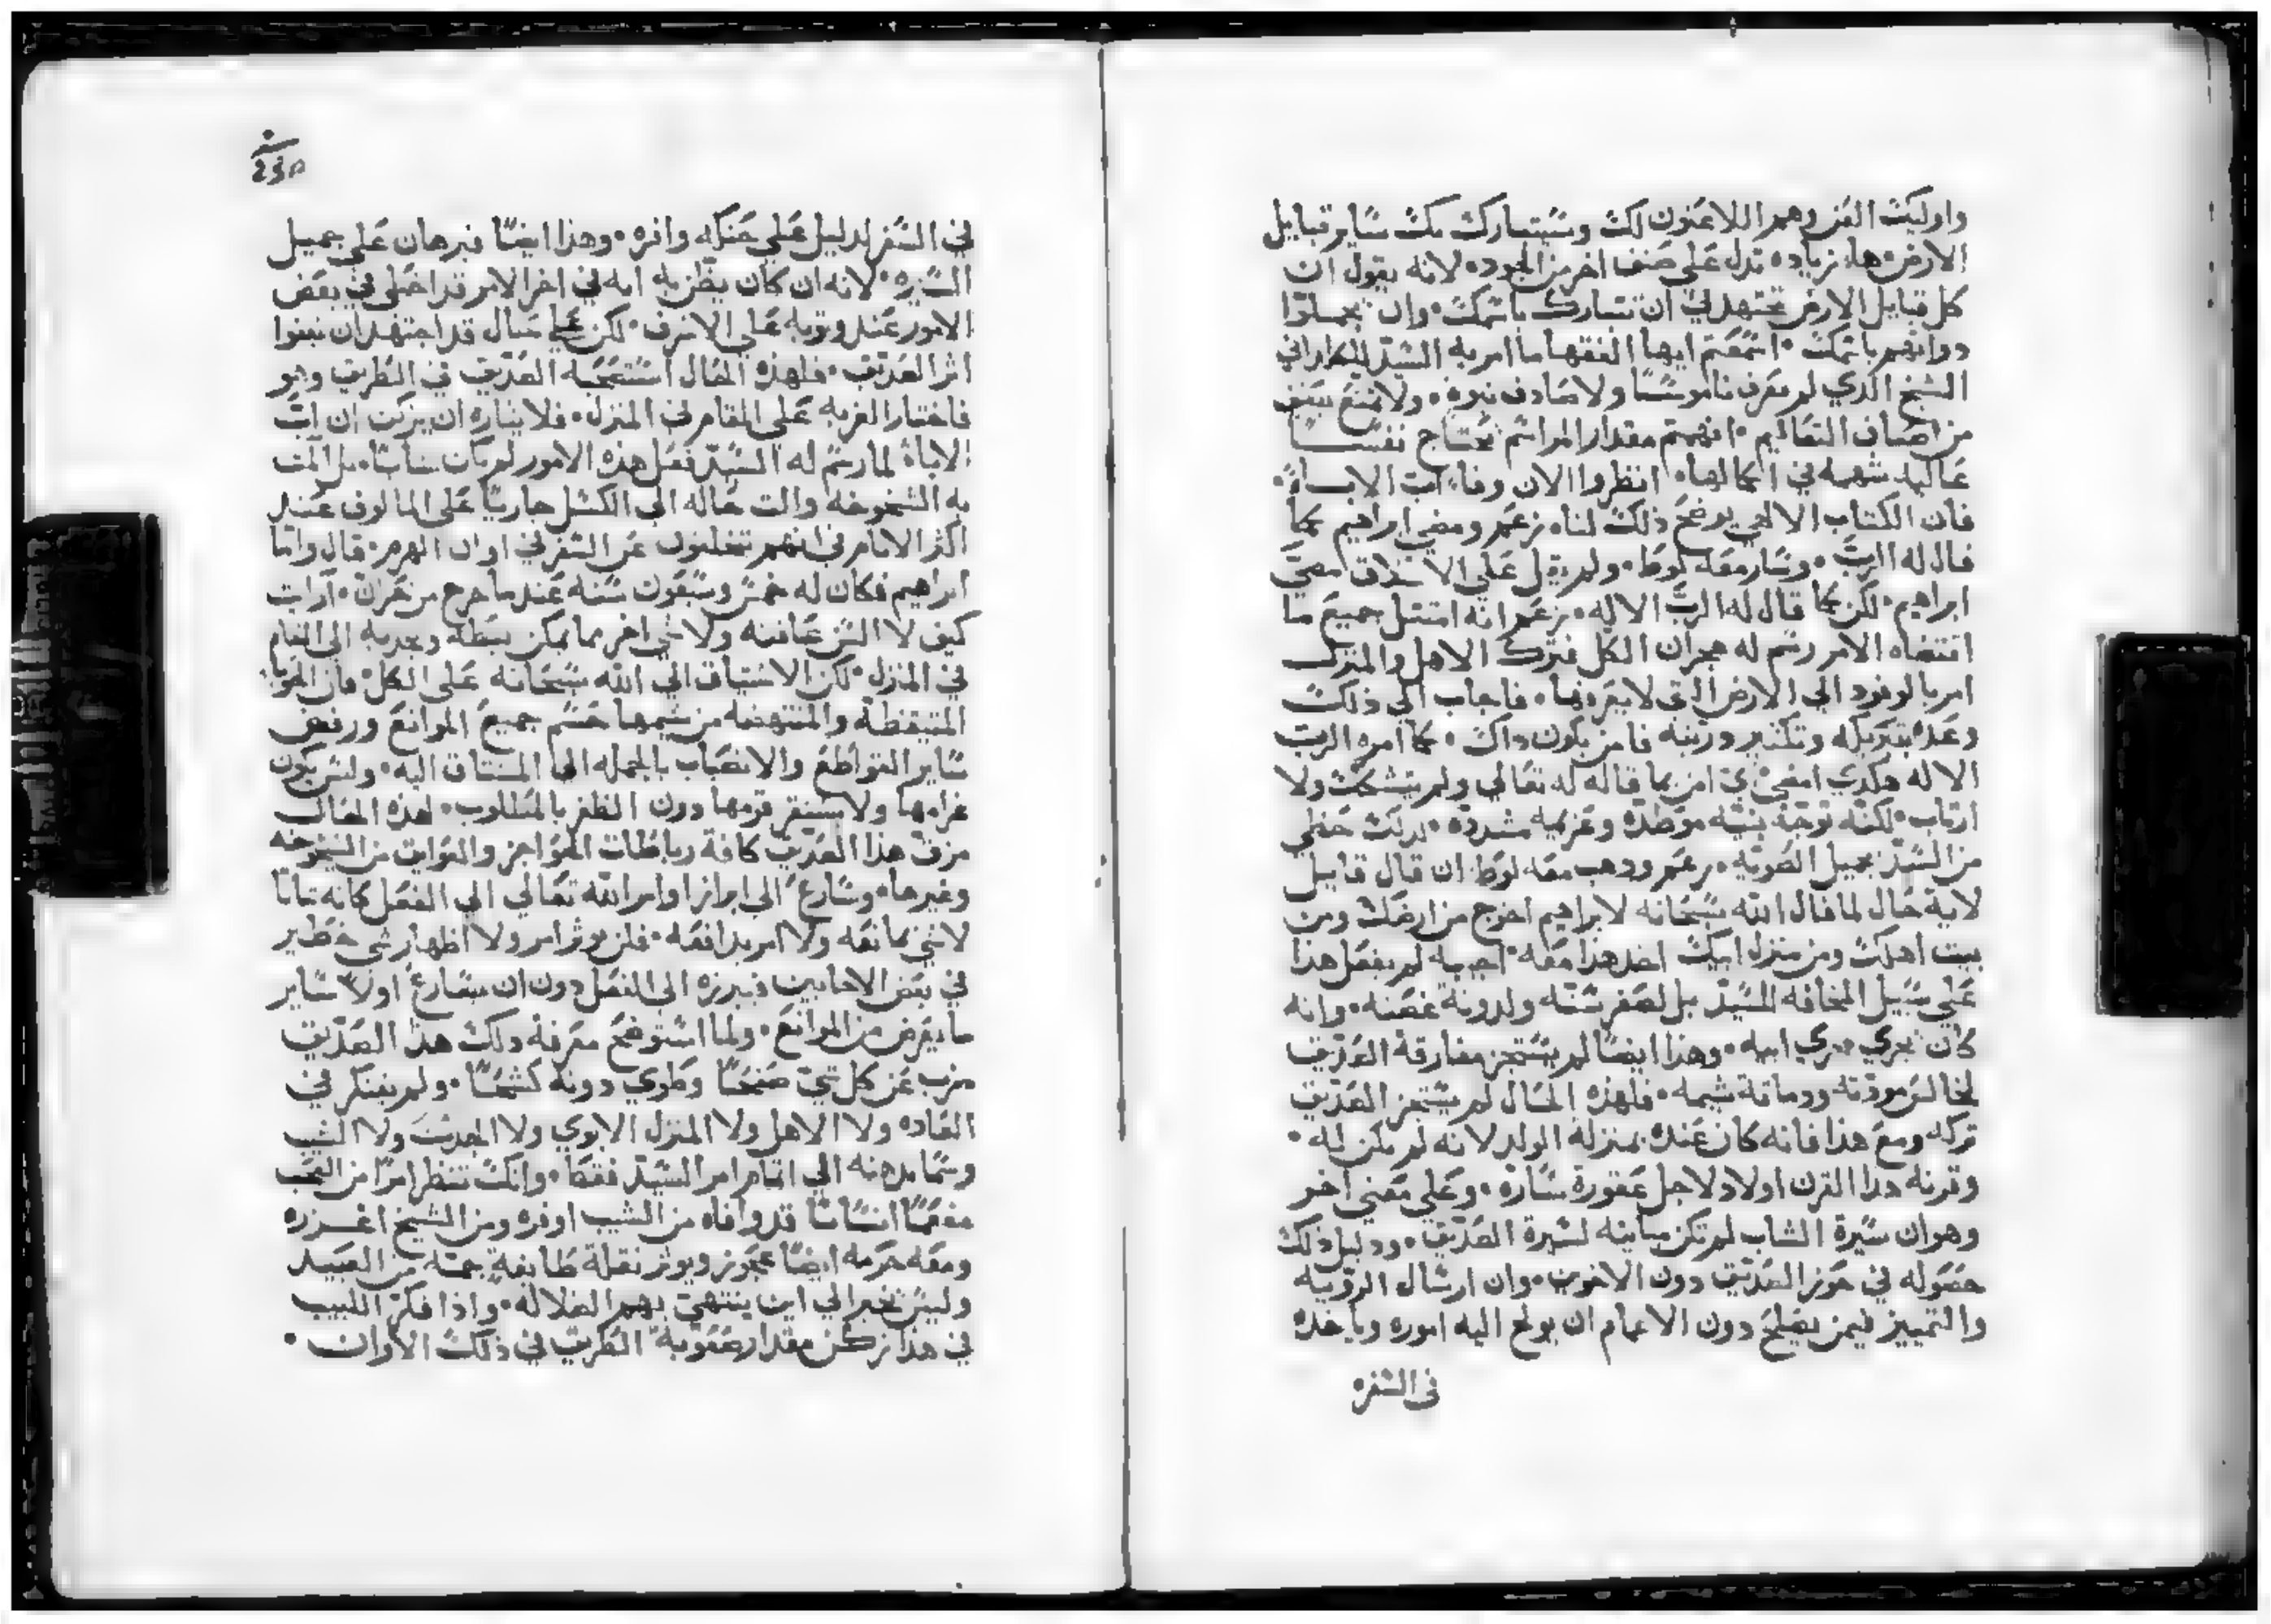 واوليك الغز وهم اللاعنون لك وسيتبارك بك ساير قبايل
الارض. ها زياده تدل على صنف اخر من الجود. لانه يقول ان
كل قبايل الارض تجتهد في ان تتبارك باسمك. وان يجعلوا
دوانهم باسمك. اسمعتم ايها الفقها ما امر به السيد للكلداني
الشيخ الذي لم يعرف ناموسًا ولا صادف نبوة. ولا تمتع
من اصناف التعاليم. افهمتم مقدار المراسم تحتاج نفسًا
عاليه شهمه في اكمالها. انظروا الان وفاء اب الاباء.
فان الكتاب الالهي يوضح ذلك لنا. زعم ومضى ابراهيم كما
قال له الرب. وسار معه لوط. ولم يقل على الاطلاق مضى
ابراهيم. لكن كما قال له الرب الاله. زعم انه امتثل جميع ما
اقتضاه الامر رسم له هجران الكل فترك الاهل والمنزل
امر بالوفود الى الارض التي لا يعرفها. فاجاب الى ذلك
وعده بتبريكه وتكثير دريته فامن بكون داك. كما امره الرب
الاله هكدي امضى امن بما قاله له تعالى ولم يتشكك ولا
ارتاب. لكنه توجه بنيه موطده وعزيمه مشدده. لدلك حظي
من السيد بجميل الطويه. زعم ودهب معه لوط. ان قال قايل
لاية حال لما قال الله سبحانه لابراهيم اخرج من ارضك ومن
بيت اهلك ومن منزل ابيك اخذ هذا معه. اجيبه لم يفعل هذا
على سبيل المخالفه للسيد بل لصغر سنه ولدونة غصنه. وانه
كان يجري مجرى ابيه. وهذا ايضًا لم يستجز مفارقة الصديق
لخالص مودته ودماثة شيمه. فلهذه الحال لم يستجز الصديق
تركه ومع هذا فانه كان عنده بمنزلة الولد لانه لم يكن له.
وقرنه هدا القرن اولاد لاجل عقورة ساره. وعلى معنى اخر
وهو ان سيرة الشاب لم تكن مباينه لسيرة الصديق. ودليل ذلك
حصوله في حوز الصديق دون الاخوين. وان ارسال الرؤيه
والتمييز فيمن يصلح دون الاعمام ان يولج اليه اموره وياخده
في السفره
في السفر لدليل على حنكه وافره. وهذا ايضًا فبرهان على جميل
السيره. لانه ان كان يظن به انه في اخر الامر قد اخطى في بعض
الامور عند وثوبه على الاشرف. لكن على حال قد اجتهد ان يقفوا
اثر الصديق. فلهذه الحال استصحبه الصديق في الطريق وهو
فاختار الغربه على المقام في المنزل. فلايناره ان يزكن ان اب
الاباء لما رسم له السيد فعل هذه الامور لم يكن شابًا. بل المت
به الشيخوخه والت حاله الى الكسل جاريًا على المالوف عند
اكثر الانام في انهم يتخلفون عن السفر في اوان الهرم. قال واما
ابراهيم فكان له خمس وسبعون سنه عندما خرج من حران. ارايت
كيف لا السن عاقته ولا شي اخر مما يمكن يبطه ويجدبه الى المقام
في المنزل. لكن الاشتياق الى الله سبحانه على الكل. فان
المتيقظة والمنتهضه من شيمها حسم جميع الموانع ورفض
ساير القواطع والانصباب بالجمله الى المشتاق اليه. وليس يكون
غرامها ولا يستقر قرمها دون الظفر بالمطلوب. لهذه الحال
مزق هذا الصديق كافة رباطات الحواجز والعوايق من الشيخوخه
وغيرها. وسارع الى ابراز اوامر الله تعالى الى الفعل كانه شابًا
لا شي يمانعه ولا امر يدافعه. فلن يوثر امر ولا اظهار شي خطير
في بعض الاحايين فيبرزه الى الفعل دون ان يصارع اولًا ساير
ما يعرض من الموانع. ولما استوضح معرفة دلك هذا الصديق
ضرب عن كل شي صفحًا وطوى دونه كشحًا. ولم يفتكر في
العاده ولا الاهل ولا المنزل الابوي ولا الجدث ولا الشيب
وسما بدهنه الى اتمام امر السيد فقط. وانك تنظر امرًا من العجب
مفعمًا انسانًا قد وافاه من الشيب اوفره ومن الشيخ اغزره
ومعه حرمه ايضًا عجوز ويوثر نقلة طايفة جمة من العبيد
وليس نخبر الى اين ينتهي بهم الضلاله. واذا فكر اللبيب
في هذا زكن مقدار صعوبة الطريق في ذلك الاوان.